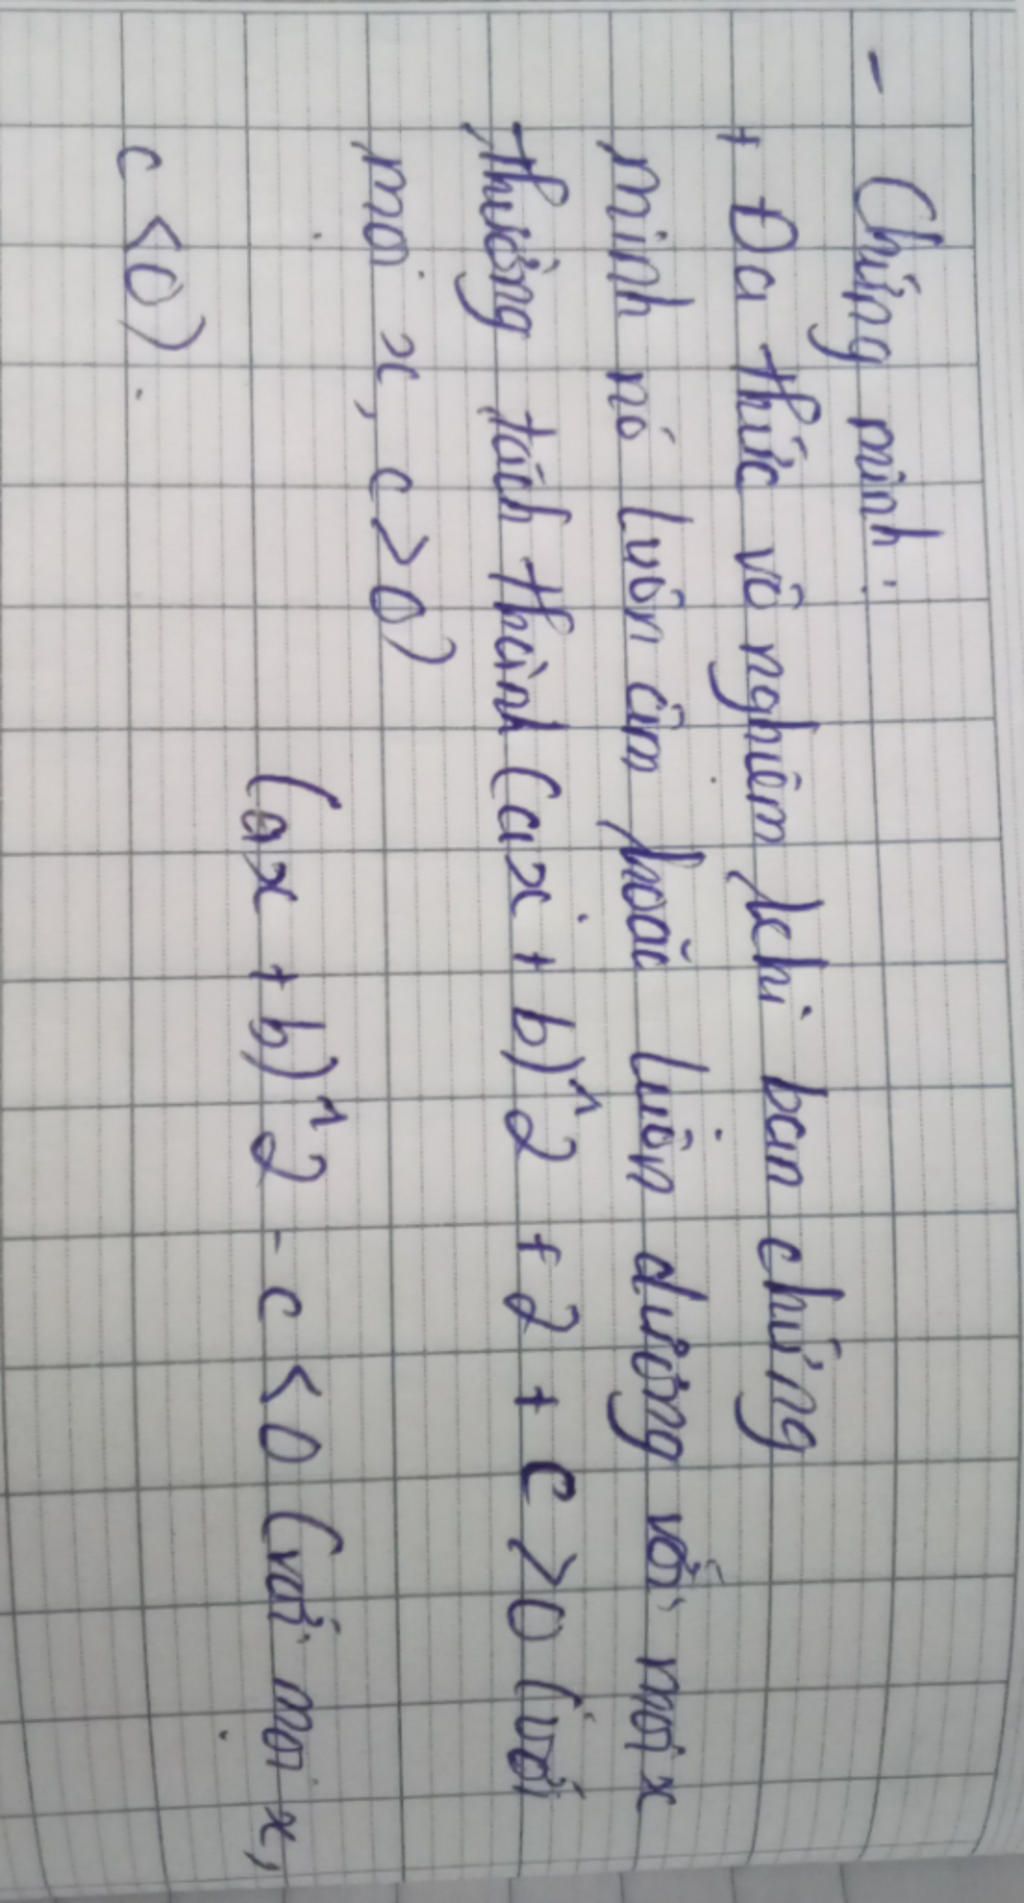 - Chứng minh:
+ Đa thức vô nghiệm khi bạn chứng
minh nó luôn âm hoặc luôn dương với mọi x
thường tách thành (ax + b)^2 + 2 + c > 0 (với
mọi x, c > 0)
(ax + b)^2 - c < 0 (với mọi x,
c < 0).